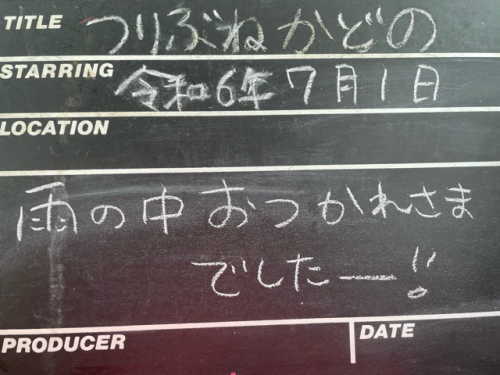 TITLE つりぶねかどの
STARRING 令和6年7月1日
LOCATION
雨の中おつかれさま
でしたー!!
PRODUCER DATE